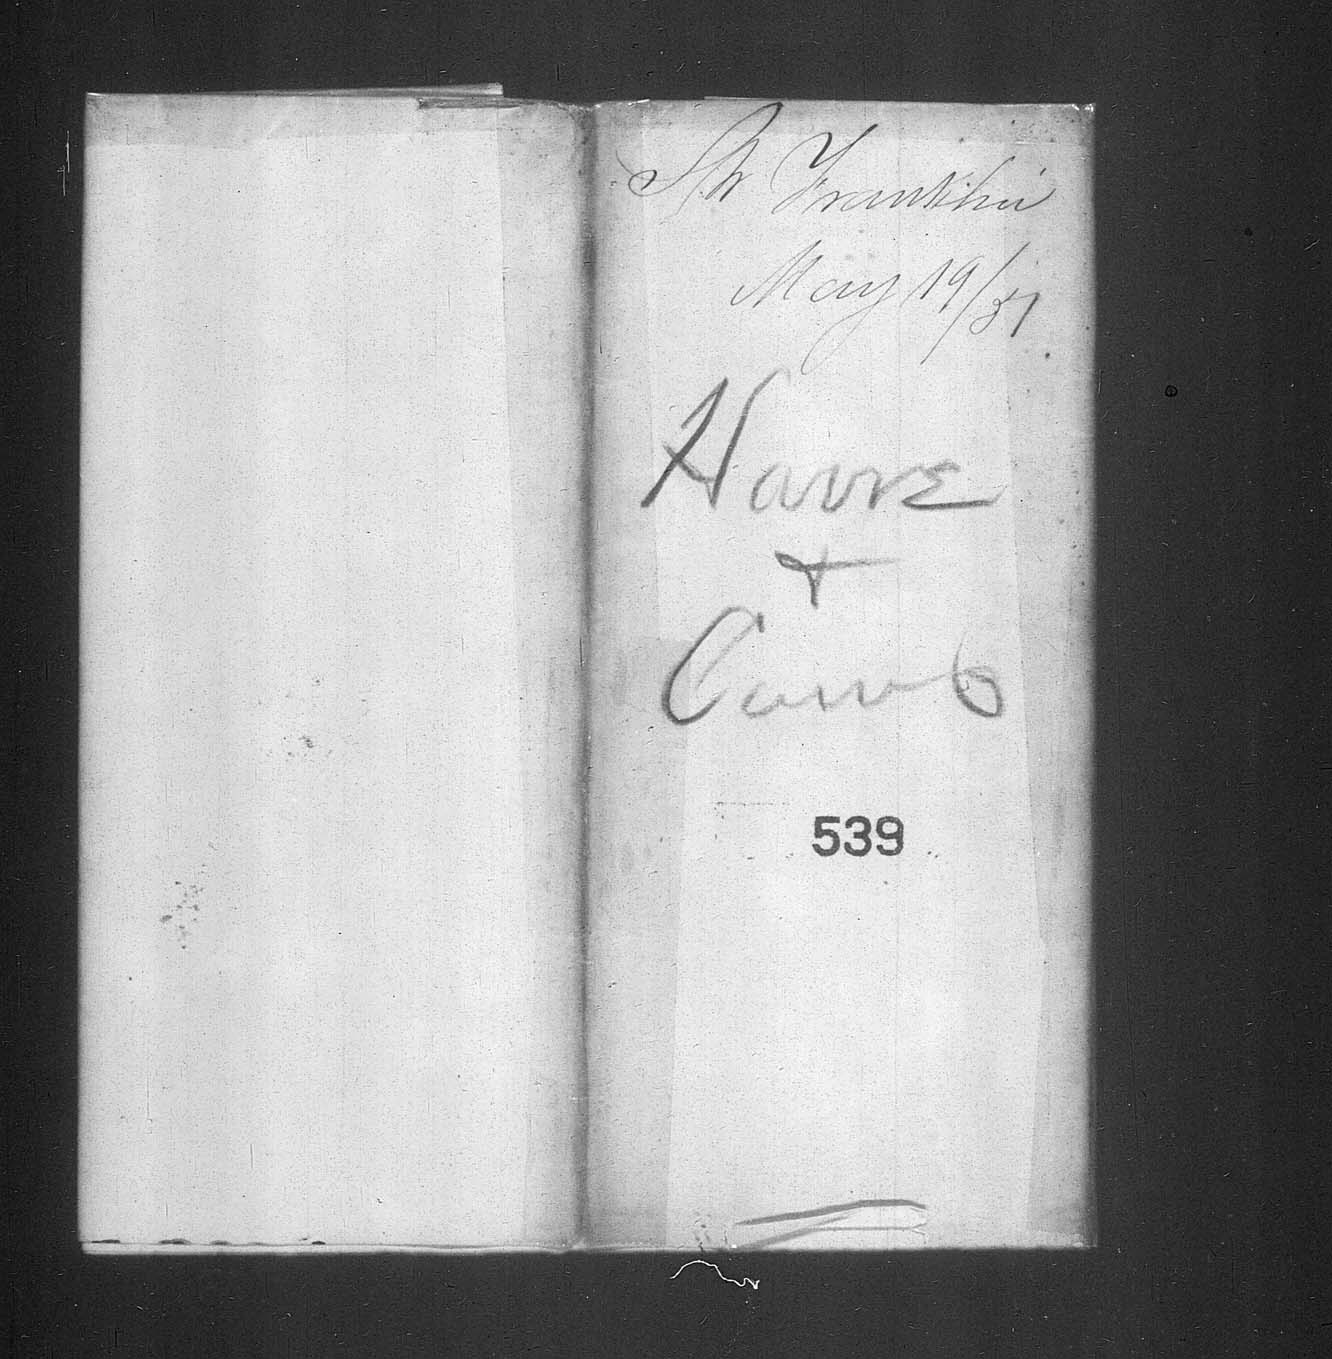 Sh Franklin
May 19/37
Havre
+
Camb
539